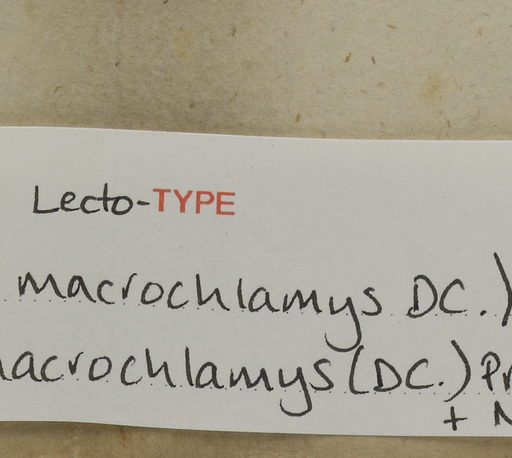 Lecto-TYPE
macrochlamys DC.)
macrochlamys (DC.) Pr
+ N